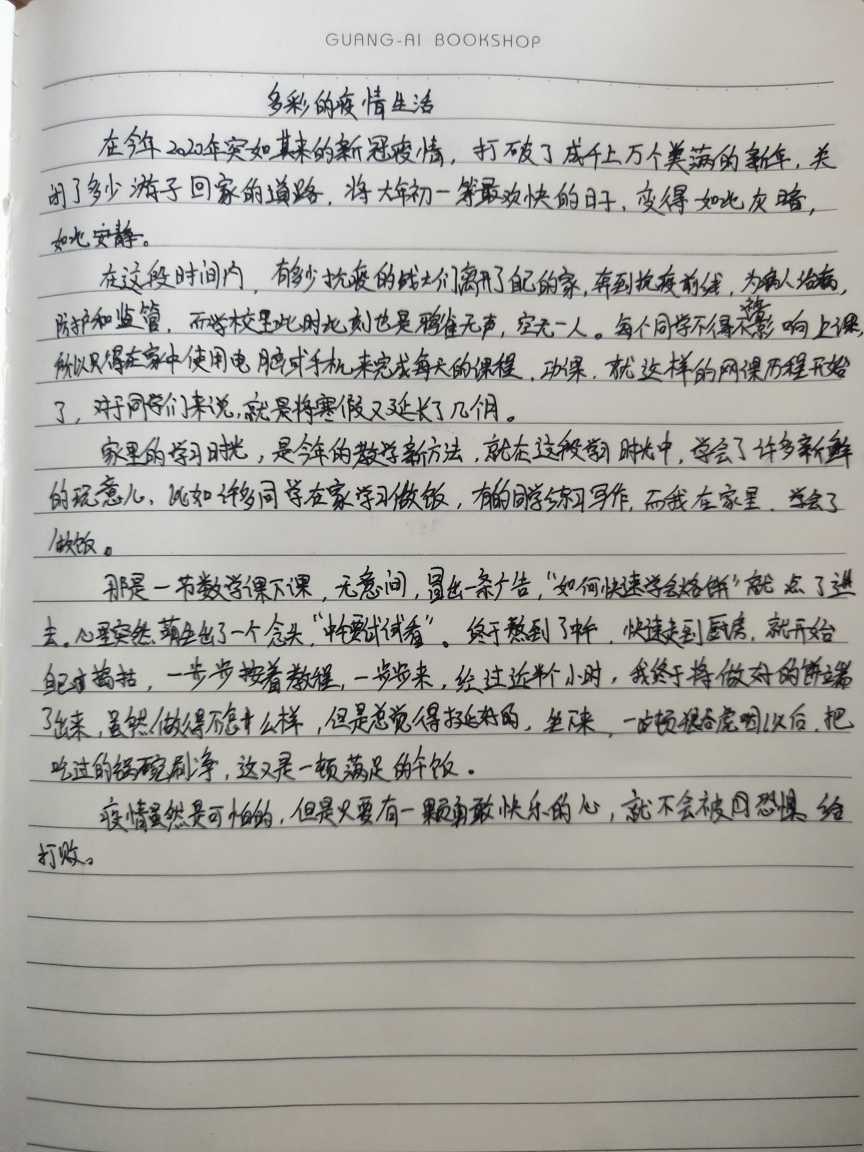 GUANG-AI BOOKSHOP
多彩的疫情生活
在今年2020年突如其来的新冠疫情，打破了成千上万个美满的新年，关
闭了多少游子回家的道路，将大年初一等最欢快的日子、变得如此灰暗，
如此安静。
在这段时间内，有多少抗疫的战士们离开了自己的家，奔到抗疫前线，为病人治病，
防护和监管，而学校里此时此刻也是鸦雀无声，空无一人。每个同学不得不影响上课，
所以只得在家中使用电脑或手机来完成每天的课程，功课，就这样的网课历程开始
了，对于同学们来说，就是将寒假又延长了几个月。
家里的学习时光，是今年的教学新方法，就在这段学习时光中，学会了许多新鲜
的玩意儿、比如许多同学在家学习做饭，有的同学练习写作，而我在家里，学会了
做饭。
那是一节数学课下课，无意间，冒出一条广告，“如何快速学会烙饼”就点了进
去。心里突然萌生出了一个念头，“中午要试试看”。终于熬到了中午，快速走到厨房，就开始
自己对，一步步按着教程，一步步来，经过近半个小时，我终于将做好的饼端
了出来，虽然做得不怎什么样，但是总觉得挺好的，坐下来，一顿狼吞虎咽以后，把
吃过的锅碗刷净，这又是一顿满足的午饭。
疫情虽然是可怕的，但是只要有一颗勇敢快乐的心，就不会被恐惧给
打败。